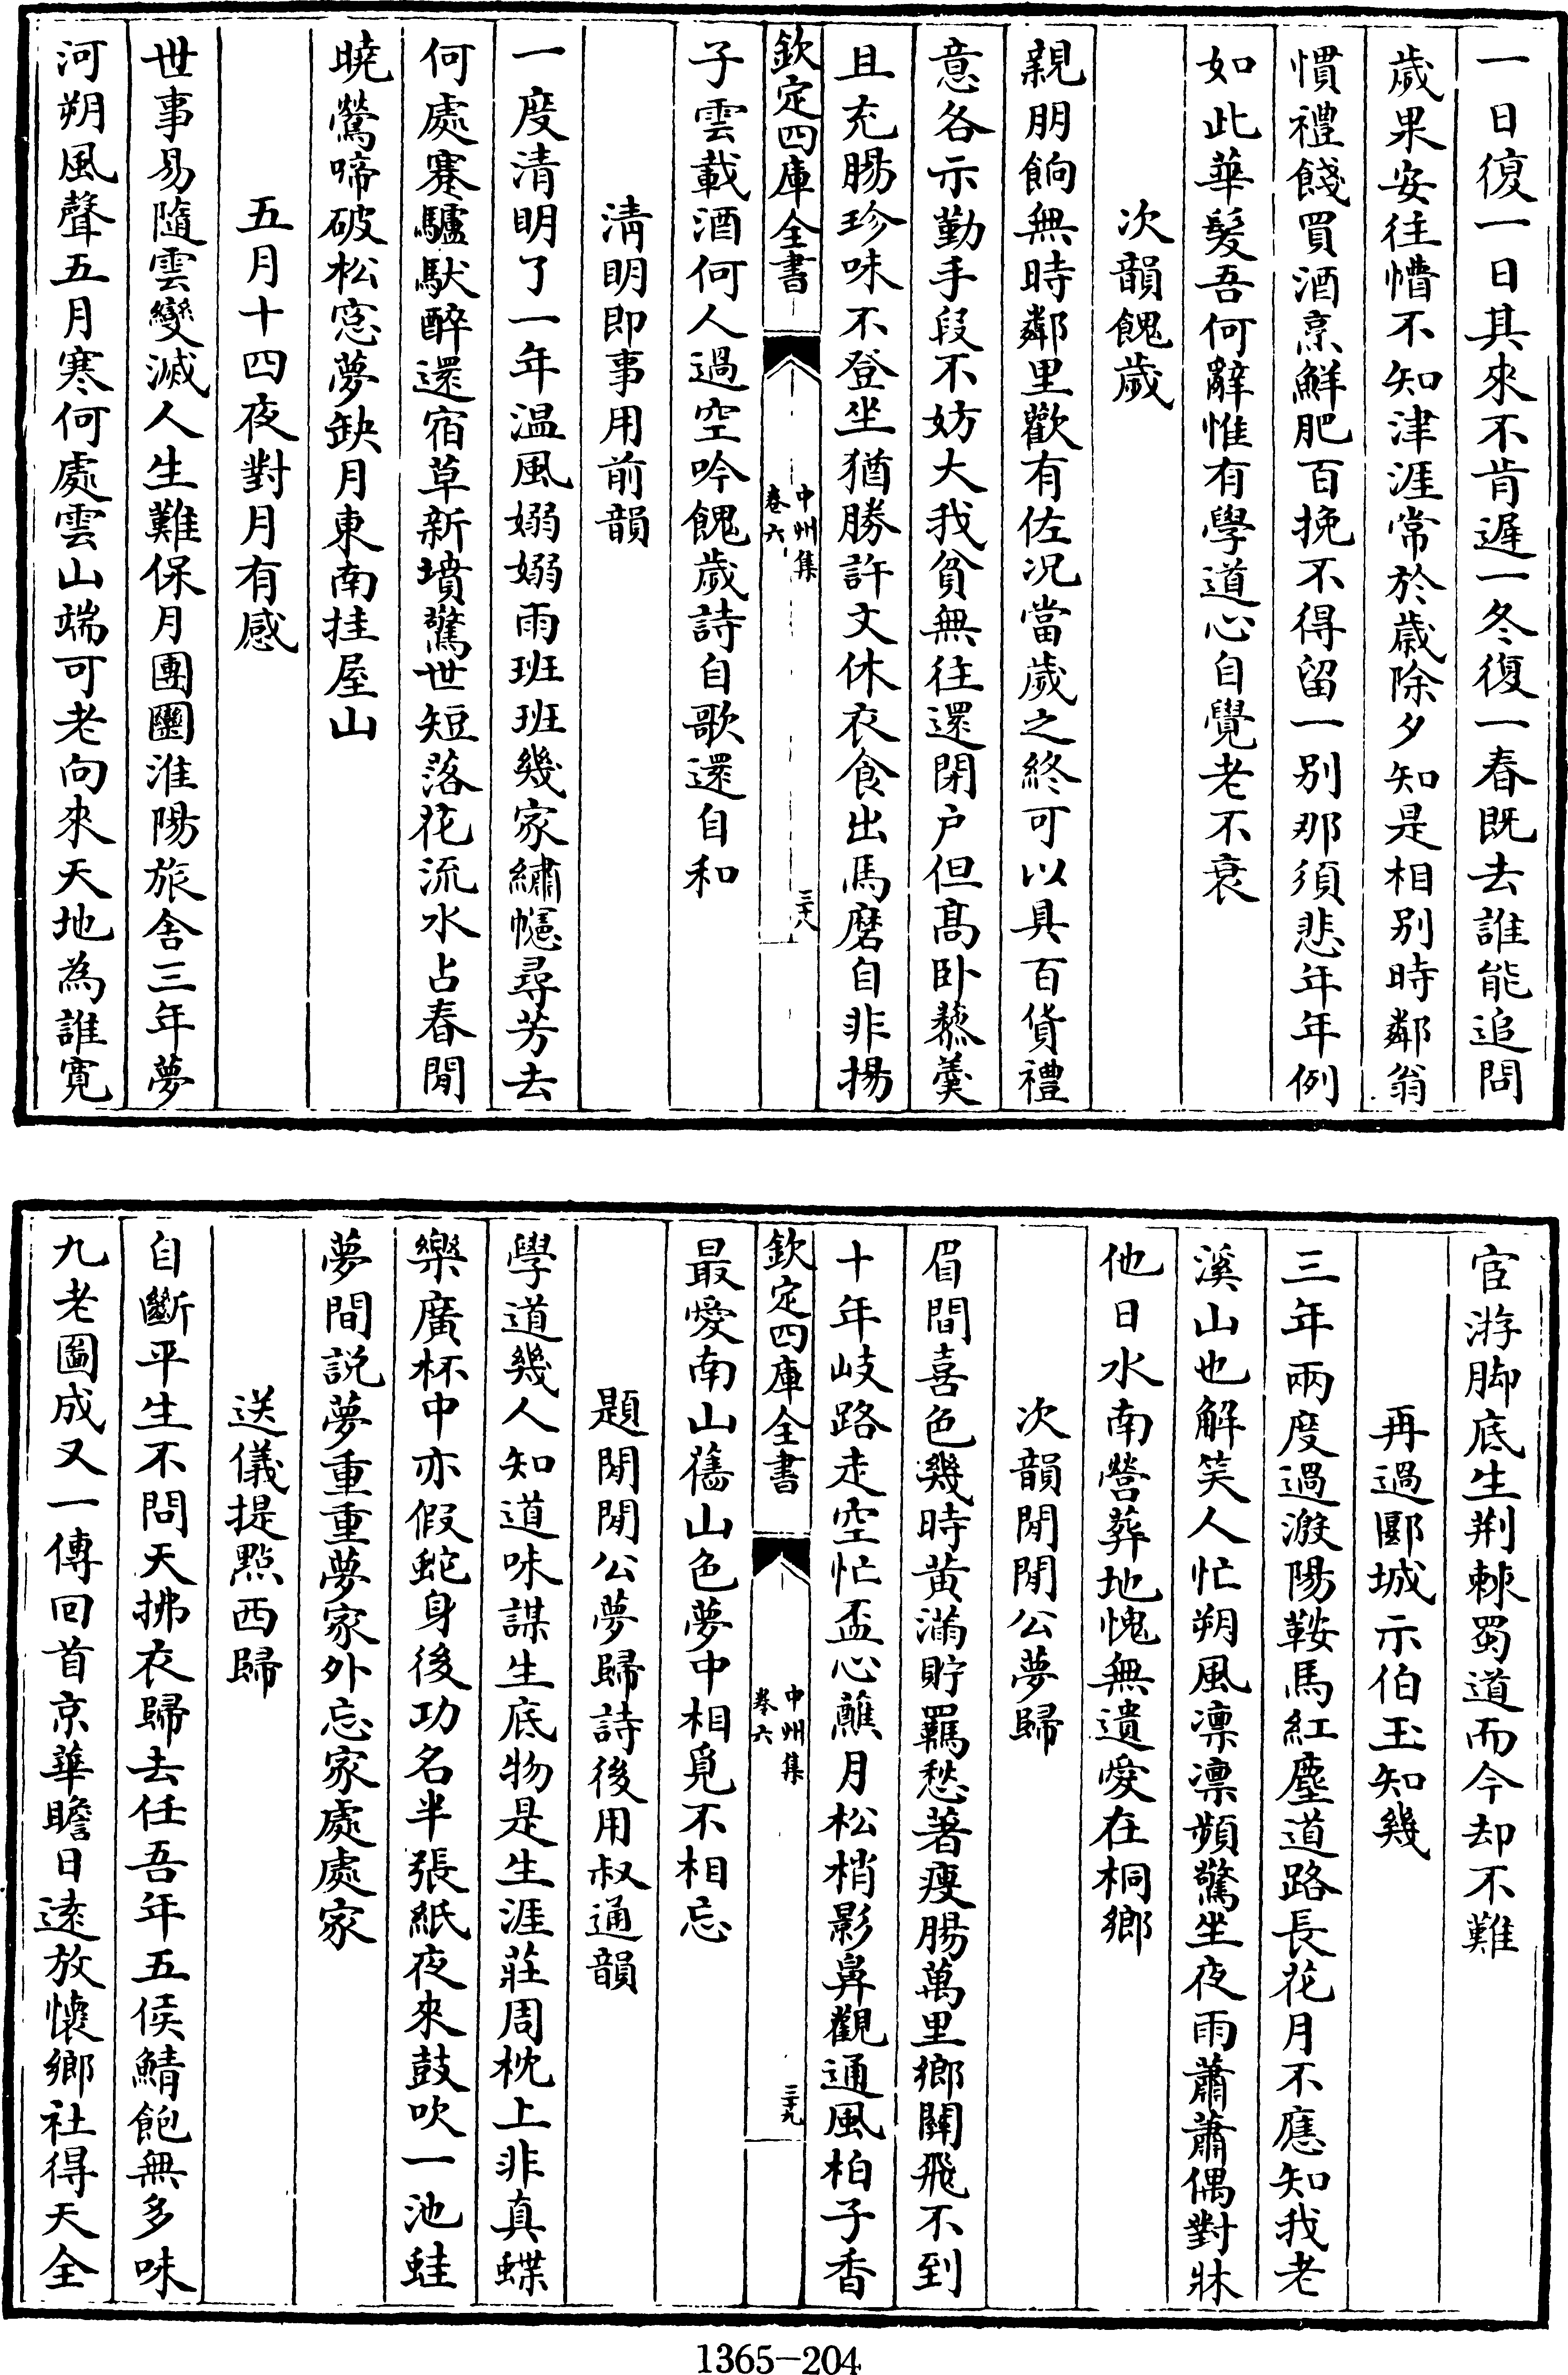 一日復一日其來不肯遲一冬復一春既去誰能追問
歲果安往懵不知津涯常於歲除夕知是相别時鄰翁
慣禮餞買酒烹鮮肥百挽不得留一别那須悲年年例
如此華髮吾何辭惟有學道心自覺老不衰
次韻餽歲
親朋餉無時鄰里歡有佐况當歲之終可以具百貨禮
意各示勤手段不妨大我貧無往還閉户但髙卧藜羮
且充腸珍味不登坐猶勝許文休衣食出馬磨自非揚
欽定四庫全書
中州集
卷六
三十八
子雲載酒何人過空吟餽歲詩自歌還自和
清明即事用前韻
一度清明了一年温風嫋嫋雨班班幾家繡幰尋芳去
何處蹇驢馱醉還宿草新墳驚世短落花流水占春閒
曉鶯啼破松窓夢缺月東南挂屋山
五月十四夜對月有感
世事易隨雲變滅人生難保月團圞淮陽旅舍三年夢
河朔風聲五月寒何處雲山端可老向來天地為誰寛
宦游脚底生荆棘蜀道而今却不難
再過郾城示伯玉知幾
三年兩度過溵陽鞍馬紅塵道路長花月不應知我老
溪山也解笑人忙朔風凛凛頻驚坐夜雨蕭蕭偶對牀
他日水南營葬地愧無遺愛在桐鄉
次韻閒閒公夢歸
眉間喜色幾時黄滿貯羈愁著瘦腸萬里鄉闗飛不到
十年岐路走空忙盃心蘸月松梢影鼻觀通風柏子香
欽定四庫全書
中州集
卷六
三十九
最愛南山舊山色夢中相覓不相忘
題閒閒公夢歸詩後用叔通韻
學道幾人知道味謀生底物是生涯莊周枕上非真蝶
樂廣杯中亦假蛇身後功名半張紙夜來鼓吹一池蛙
夢間説夢重重夢家外忘家處處家
送儀提點西歸
自斷平生不問天拂衣歸去任吾年五侯鯖飽無多味
九老圖成又一傳回首京華瞻日逺放懷鄉社得天全
1365-204